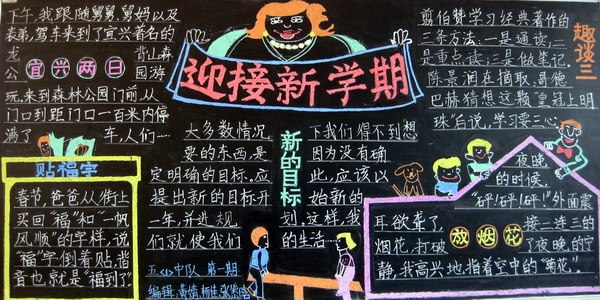 下午,我跟随舅舅、舅妈以及
表弟,驾车来到了宜兴著名的
龙背山森
公园游
宜兴两日
玩.来到森林公园门前,从
门口到距门口一百米内停
满了车,人们…
迎接新学期
剪伯赞学习经典著作的
三条方法:一是通读;二
是重点读;三是做笔记.
陈景润在摘取哥德
巴赫猜想这颗皇冠上明
珠后说,学习要三心
趣谈三
贴福字
春节,爸爸从街上
买回“福”和“一帆
风顺”的字样,说
“福”字倒着贴,谐
音也就是“福到了”
新的目标
大多数情况下我们得不到想
要的东西,是因为没有确
定明确的目标.应此,应该以
提出新的目标开始新的
一年,并进规划.这样,我
们就使我们的生活…
五〈1〉中队 第一期
编辑:
放烟花
夜晚
的时候,
“砰!砰!砰!”外面震
耳欲聋了.接二连三的
烟花,打破了夜晚,的宁
静,我高兴地,指着空中的“菊花”.